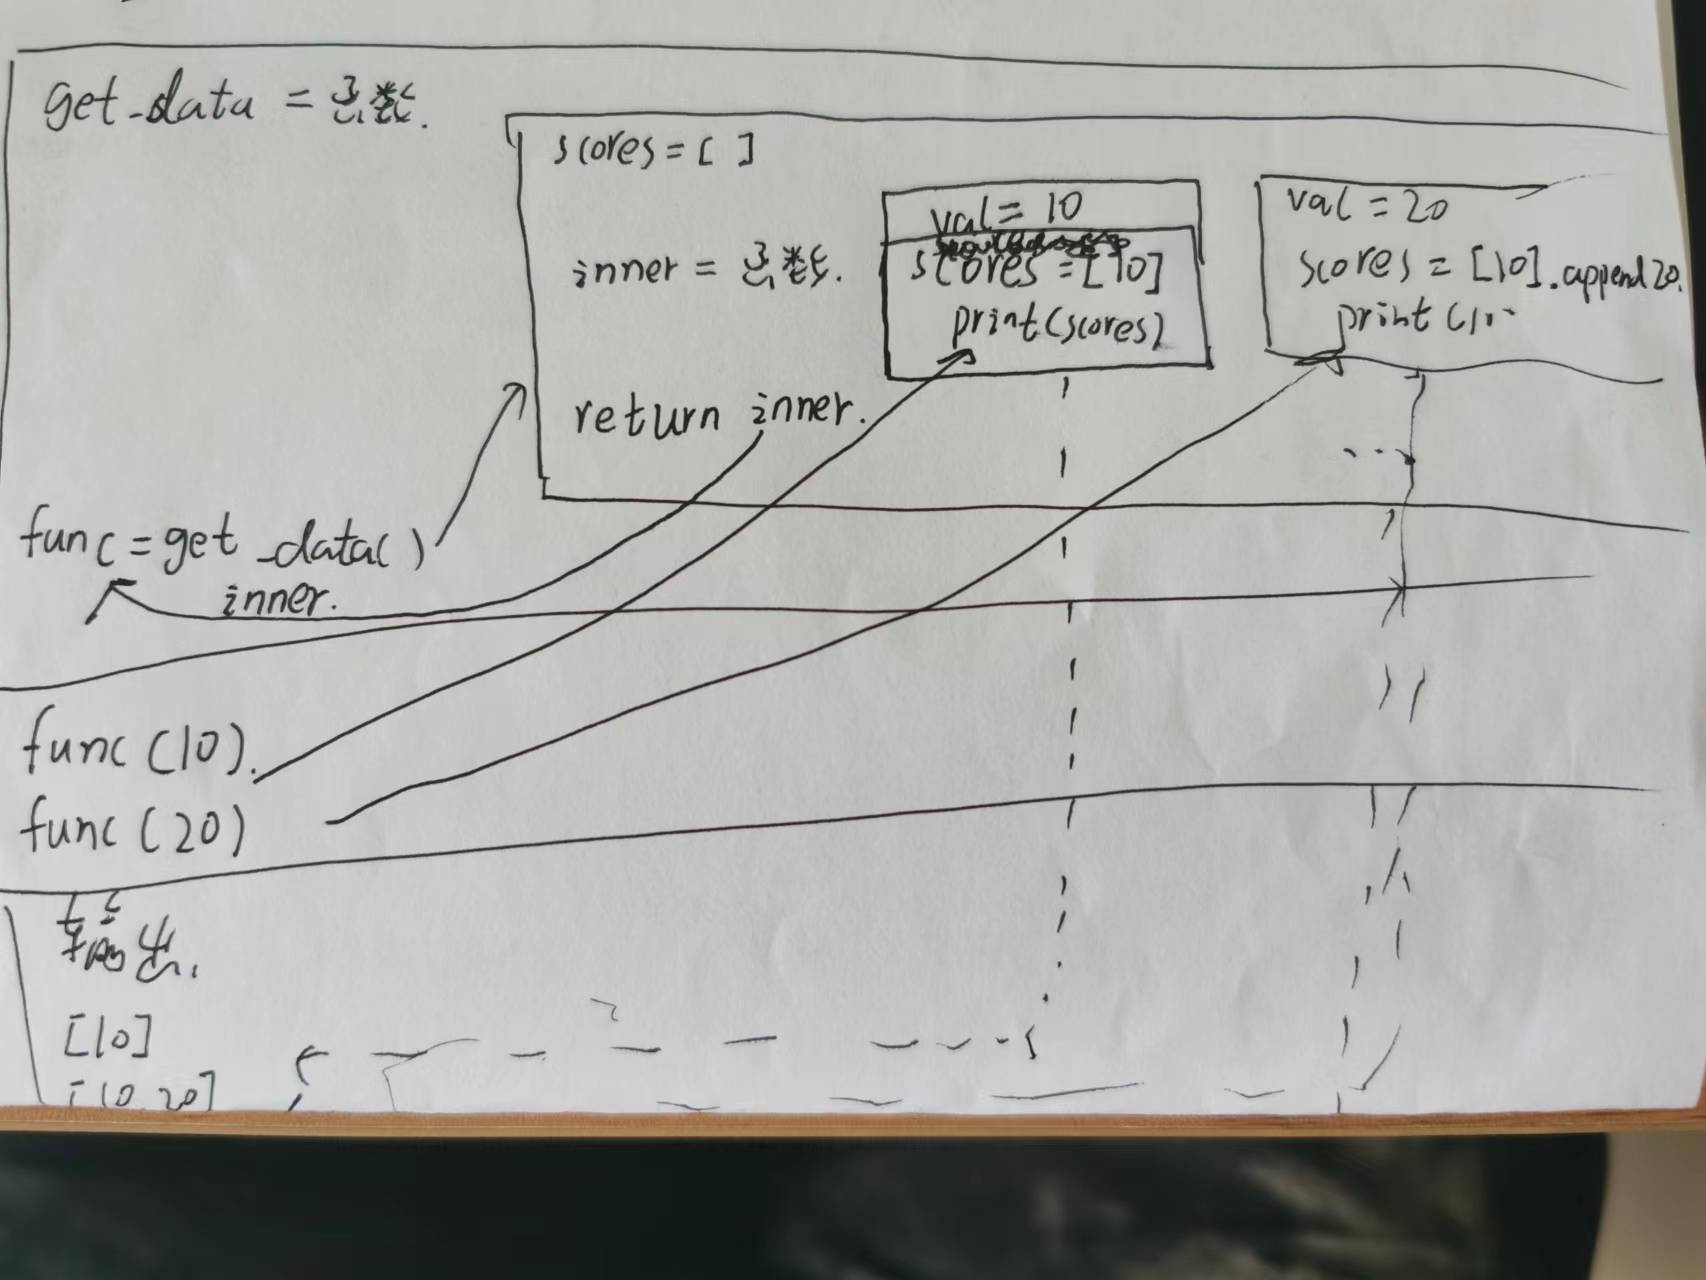 get_data = 函数.
scores = [ ]
inner = 函数.
return inner.
val = 10
scores = [10]
print(scores)
val = 20
scores = [10].append20.
print(10
func = get_data()
inner.
func(10).
func(20)
输出.
[10]
[10 20]